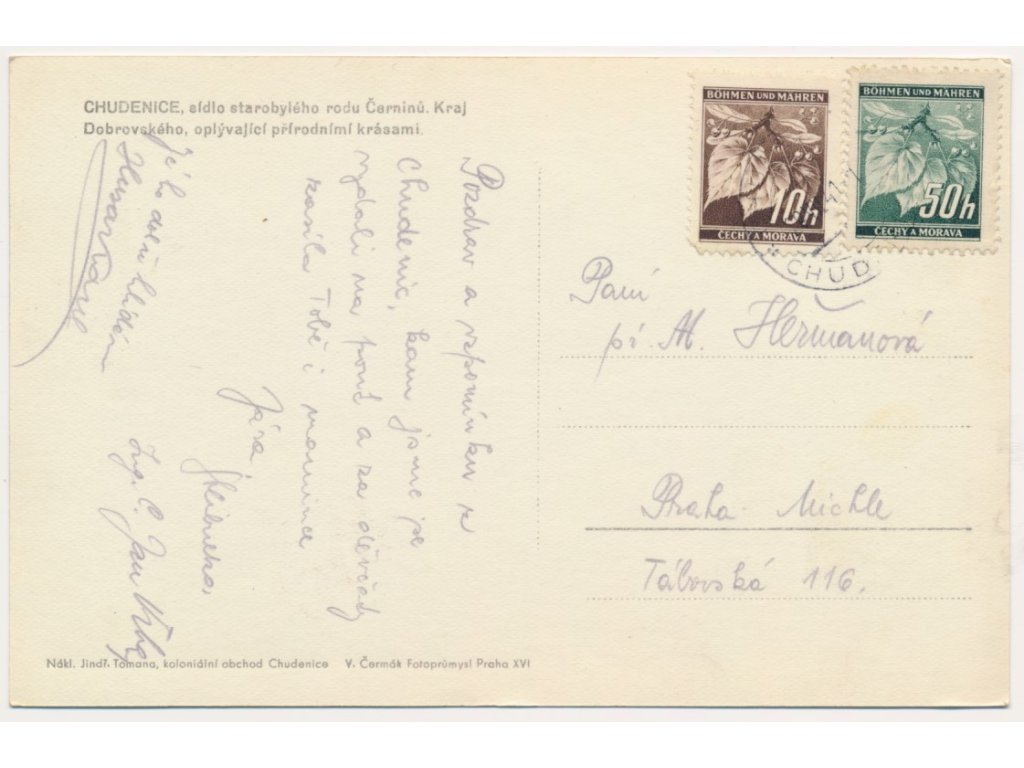 CHUDENICE, sídlo starobylého rodu Černínů. Kraj
Dobrovského, oplývající přírodními krásami.
Pozdrav a vzpomínku z
Chudenic, kam jsme se
vydali na pouť a za děvčaty
zasíla Tobě i mamince
Jára,
Ing. C. Jan
BÖHMEN UND MÄHREN
10h
ČECHY A MORAVA
BÖHMEN UND MÄHREN
50h
ČECHY A MORAVA
CHUD
Paní
pí. M. Heřmanová
Praha - Michle
Táborská 116.
Nákl. Jindř. Tomana, koloniální obchod Chudenice V. Čermák Fotoprůmysl Praha XVI